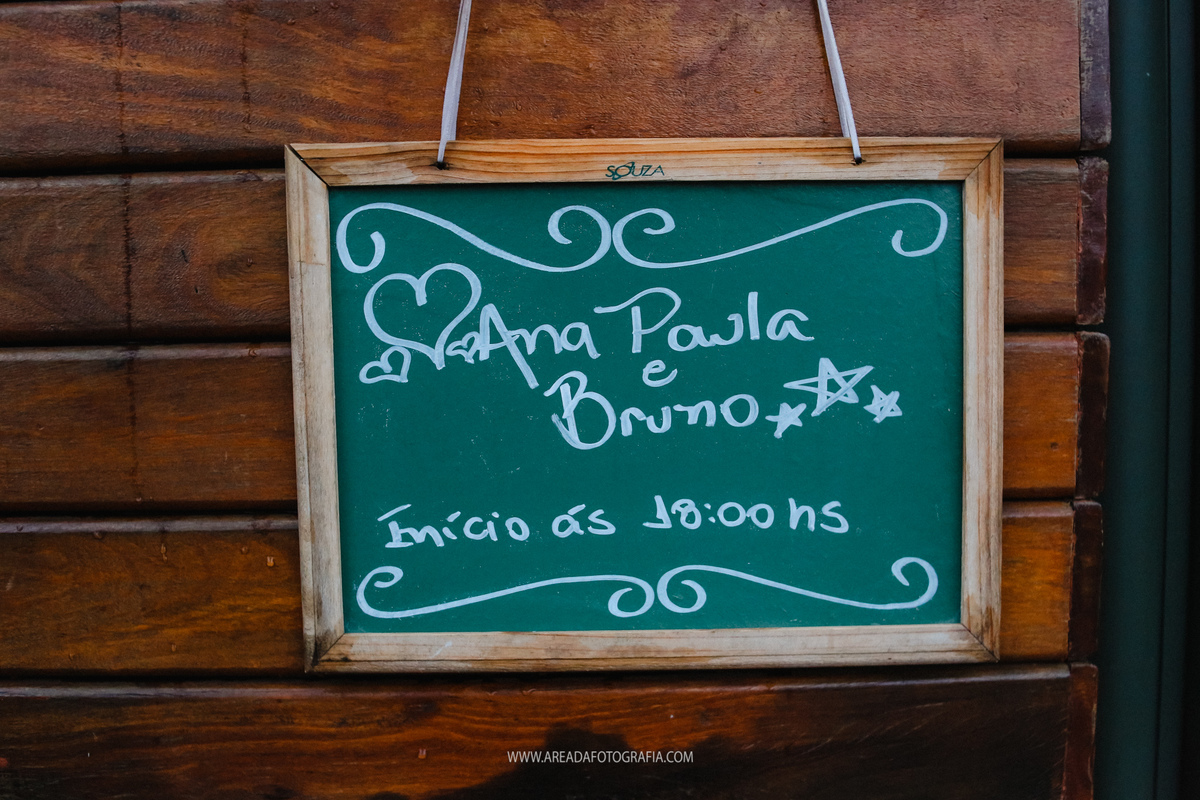 SOUZA
Ana Paula
e
Bruno
Início ás 18:00 hs
WWW.AREADAFOTOGRAFIA.COM